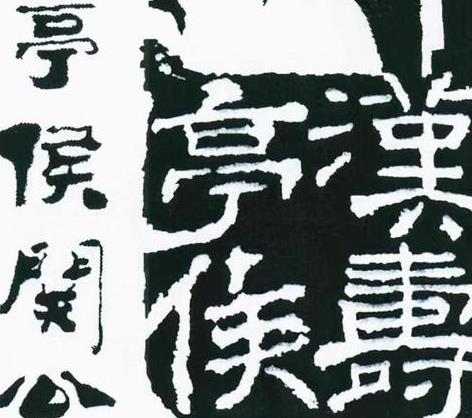 漢壽
亭侯
亭侯関公